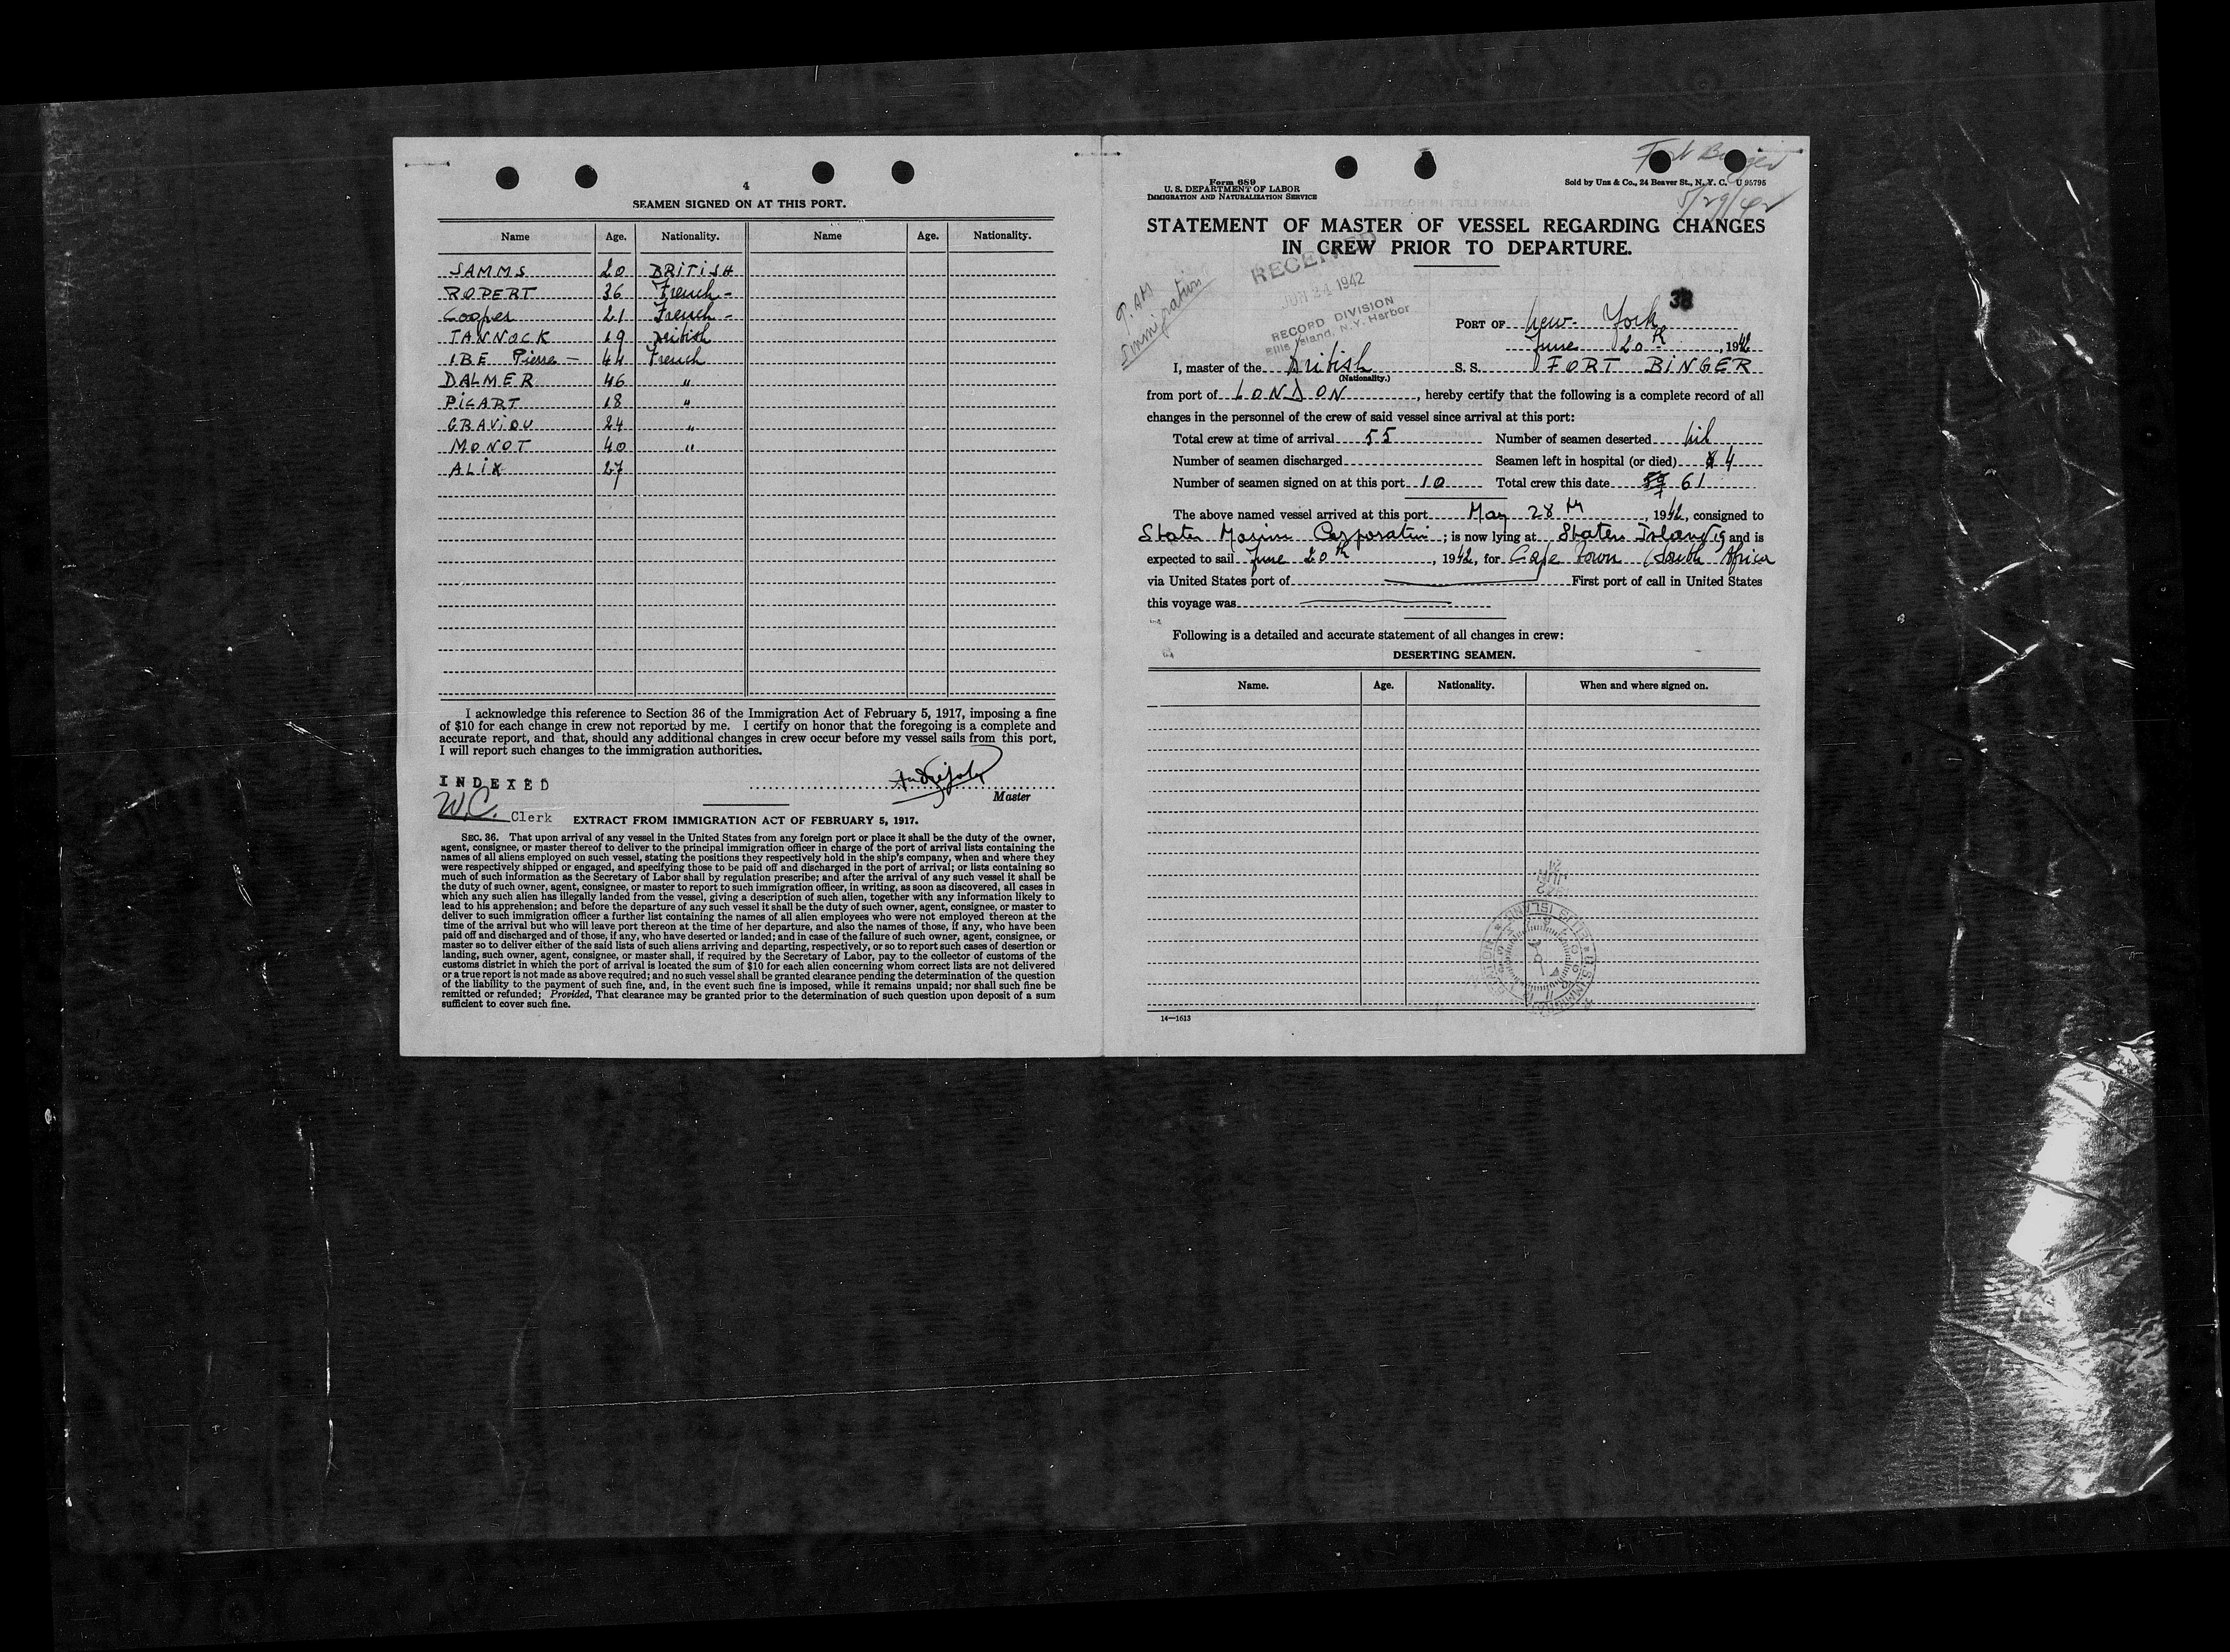 4
SEAMEN SIGNED ON AT THIS PORT.
Name Age. Nationality. Name Age. Nationality.
SAMMS 20 BRITISH
ROPERT 36 French -
Cooper 21 French -
TANNOCK 19 British
IBE Pierre - 44 French
DALMER 46 "
PICART 18 "
GRAVIOU 24 "
MONOT 40 "
ALIX 27
I acknowledge this reference to Section 36 of the Immigration Act of February 5, 1917, imposing a fine
of $10 for each change in crew not reported by me. I certify on honor that the foregoing is a complete and
accurate report, and that, should any additional changes in crew occur before my vessel sails from this port,
I will report such changes to the immigration authorities.
INDEXED
Master
W.C. Clerk
EXTRACT FROM IMMIGRATION ACT OF FEBRUARY 5, 1917.
SEC. 36. That upon arrival of any vessel in the United States from any foreign port or place it shall be the duty of the owner,
agent, consignee, or master thereof to deliver to the principal immigration officer in charge of the port of arrival lists containing the
names of all aliens employed on such vessel, stating the positions they respectively hold in the ship's company, when and where they
were respectively shipped or engaged, and specifying those to be paid off and discharged in the port of arrival; or lists containing so
much of such information as the Secretary of Labor shall by regulation prescribe; and after the arrival of any such vessel it shall be
the duty of such owner, agent, consignee, or master to report to such immigration officer, in writing, as soon as discovered, all cases in
which any such alien has illegally landed from the vessel, giving a description of such alien, together with any information likely to
lead to his apprehension; and before the departure of any such vessel it shall be the duty of such owner, agent, consignee, or master to
deliver to such immigration officer a further list containing the names of all alien employees who were not employed thereon at the
time of the arrival but who will leave port thereon at the time of her departure, and also the names of those, if any, who have been
paid off and discharged and of those, if any, who have deserted or landed; and in case of the failure of such owner, agent, consignee, or
master so to deliver either of the said lists of such aliens arriving and departing, respectively, or so to report such cases of desertion or
landing, such owner, agent, consignee, or master shall, if required by the Secretary of Labor, pay to the collector of customs of the
customs district in which the port of arrival is located the sum of $10 for each alien concerning whom correct lists are not delivered
or a true report is not made as above required; and no such vessel shall be granted clearance pending the determination of the question
of the liability to the payment of such fine, and, in the event such fine is imposed, while it remains unpaid; nor shall such fine be
remitted or refunded; Provided, That clearance may be granted prior to the determination of such question upon deposit of a sum
sufficient to cover such fine.
Fort Binger
5/29/42
Form 689
U. S. DEPARTMENT OF LABOR
IMMIGRATION AND NATURALIZATION SERVICE
Sold by Unz & Co., 24 Beaver St., N. Y. C. U 95795
STATEMENT OF MASTER OF VESSEL REGARDING CHANGES
IN CREW PRIOR TO DEPARTURE.
RECEIVED
JUN 24 1942
RECORD DIVISION
Ellis Island, N.Y. Harbor
Immigration
38
PORT OF New-York
June 20th, 1942
I, master of the British S. S. FORT BINGER
(Nationality.)
from port of LONDON, hereby certify that the following is a complete record of all
changes in the personnel of the crew of said vessel since arrival at this port:
Total crew at time of arrival 55 Number of seamen deserted nil
Number of seamen discharged Seamen left in hospital (or died) 4
Number of seamen signed on at this port 10 Total crew this date 61
The above named vessel arrived at this port May 28th, 1942, consigned to
States Marine Corporation; is now lying at Staten Island 19 and is
expected to sail June 20th, 1942, for Cape Town (South Africa
via United States port of First port of call in United States
this voyage was
Following is a detailed and accurate statement of all changes in crew:
DESERTING SEAMEN.
Name. Age. Nationality. When and where signed on.
14—1613